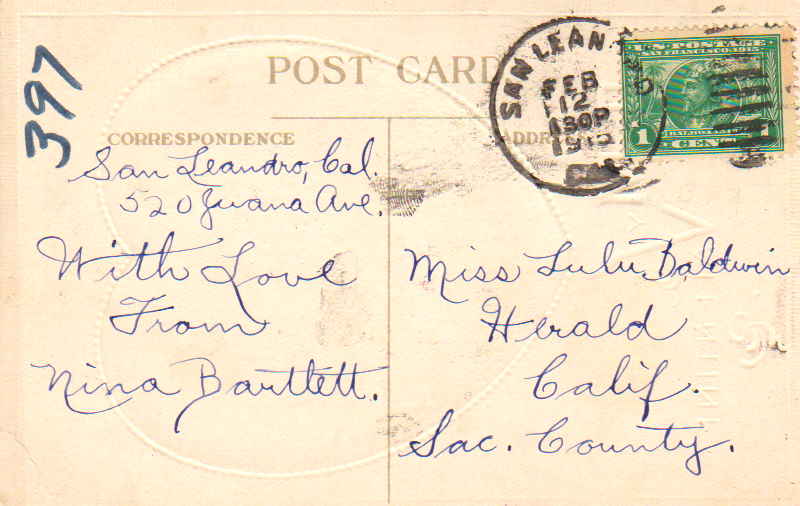 397
POST CARD
CORRESPONDENCE
San Leandro, Cal.
520 Juana Ave.
With Love
From
Nina Bartlett.
SAN LEAN
FEB
12
130P
U.S. POSTAGE
SAN FRANCISCO 1915
1
CENT
Miss Lulu Baldwin
Herald
Calif.
Sac. County.